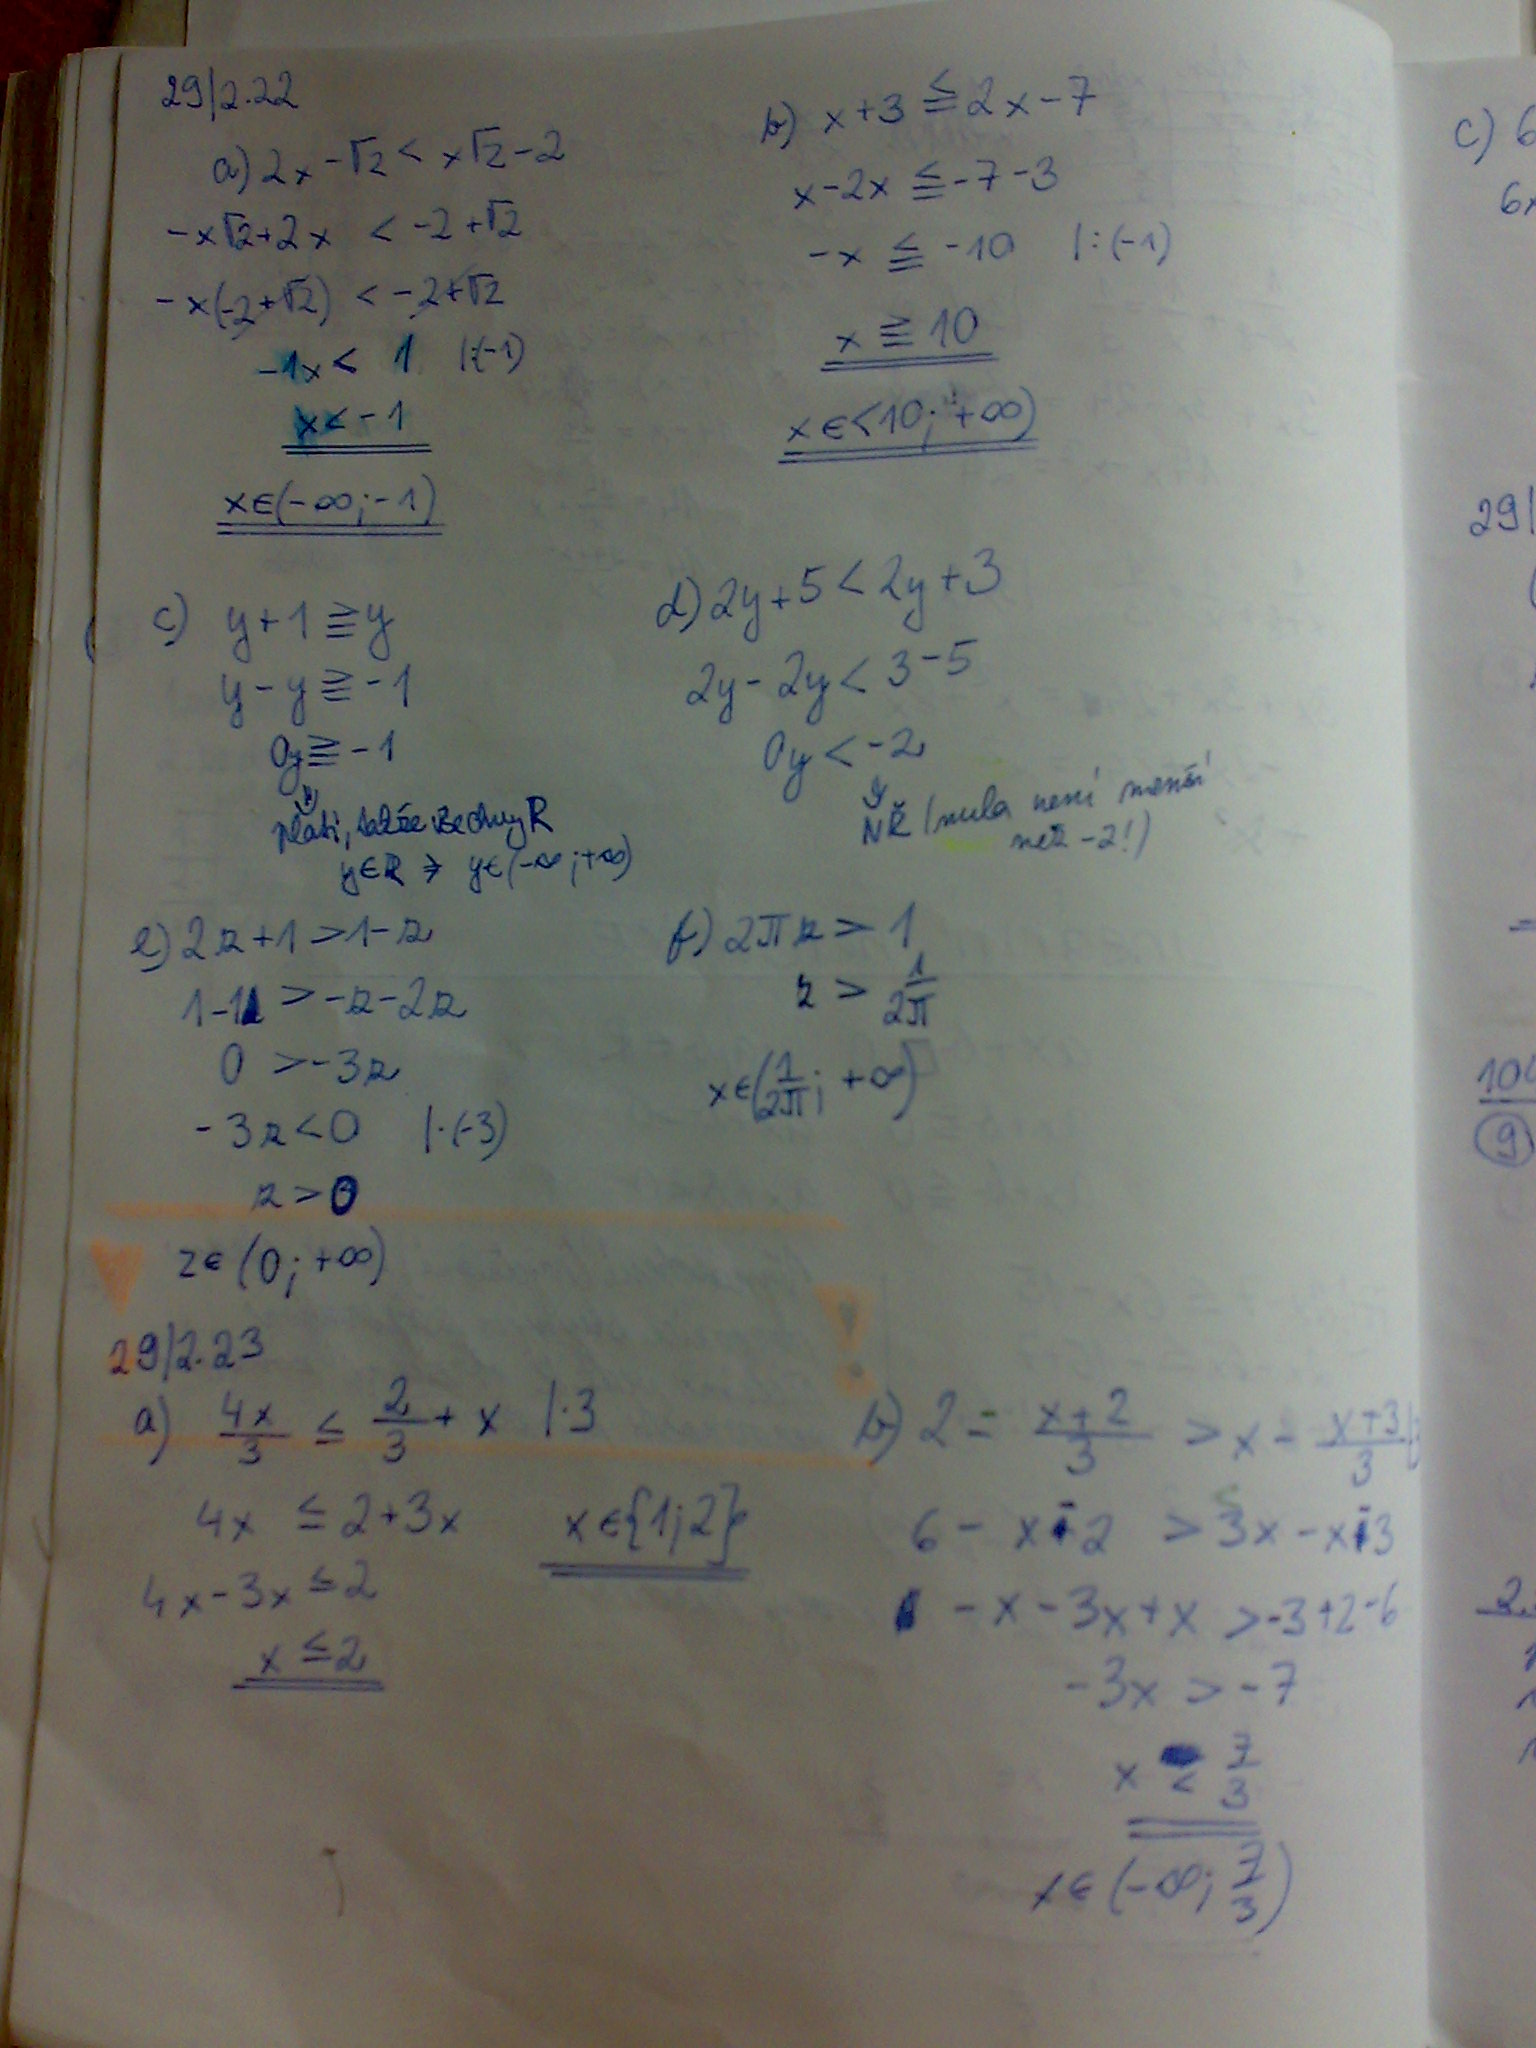 29/2.22
a) 2x - √2 < x√2 - 2
-x√2 + 2x < -2 + √2
-x(-2 + √2) < -2 + √2
-1x < 1 /:(-1)
x < -1
x∈(-∞; -1)
b) x + 3 ≦ 2x - 7
x - 2x ≦ -7 - 3
-x ≦ -10 /:(-1)
x ≧ 10
x∈<10; +∞)
c) y + 1 ≧ y
y - y ≧ -1
0y ≧ -1
platí, takže všechny R
y∈R → y∈(-∞; +∞)
d) 2y + 5 < 2y + 3
2y - 2y < 3 - 5
0y < -2
NŘ (nula není menší
než -2!)
e) 2z + 1 > 1 - z
1 - 1 > -z - 2z
0 > -3z
-3z < 0 /·(-3)
z > 0
z∈(0; +∞)
f) 2πz > 1
z > 1/2π
x∈(1/2π; +∞)
29/2.23
a) 4x/3 ≤ 2/3 + x /·3
4x ≤ 2 + 3x
4x - 3x ≤ 2
x ≤ 2
x∈{1;2}
b) 2 - x+2/3 > x - x+3/3
6 - x - 2 > 3x - x - 3
-x - 3x + x > -3 + 2 - 6
-3x > -7
x < 7/3
x∈(-∞; 7/3)
c) 6
6x
29/
104
9
2.